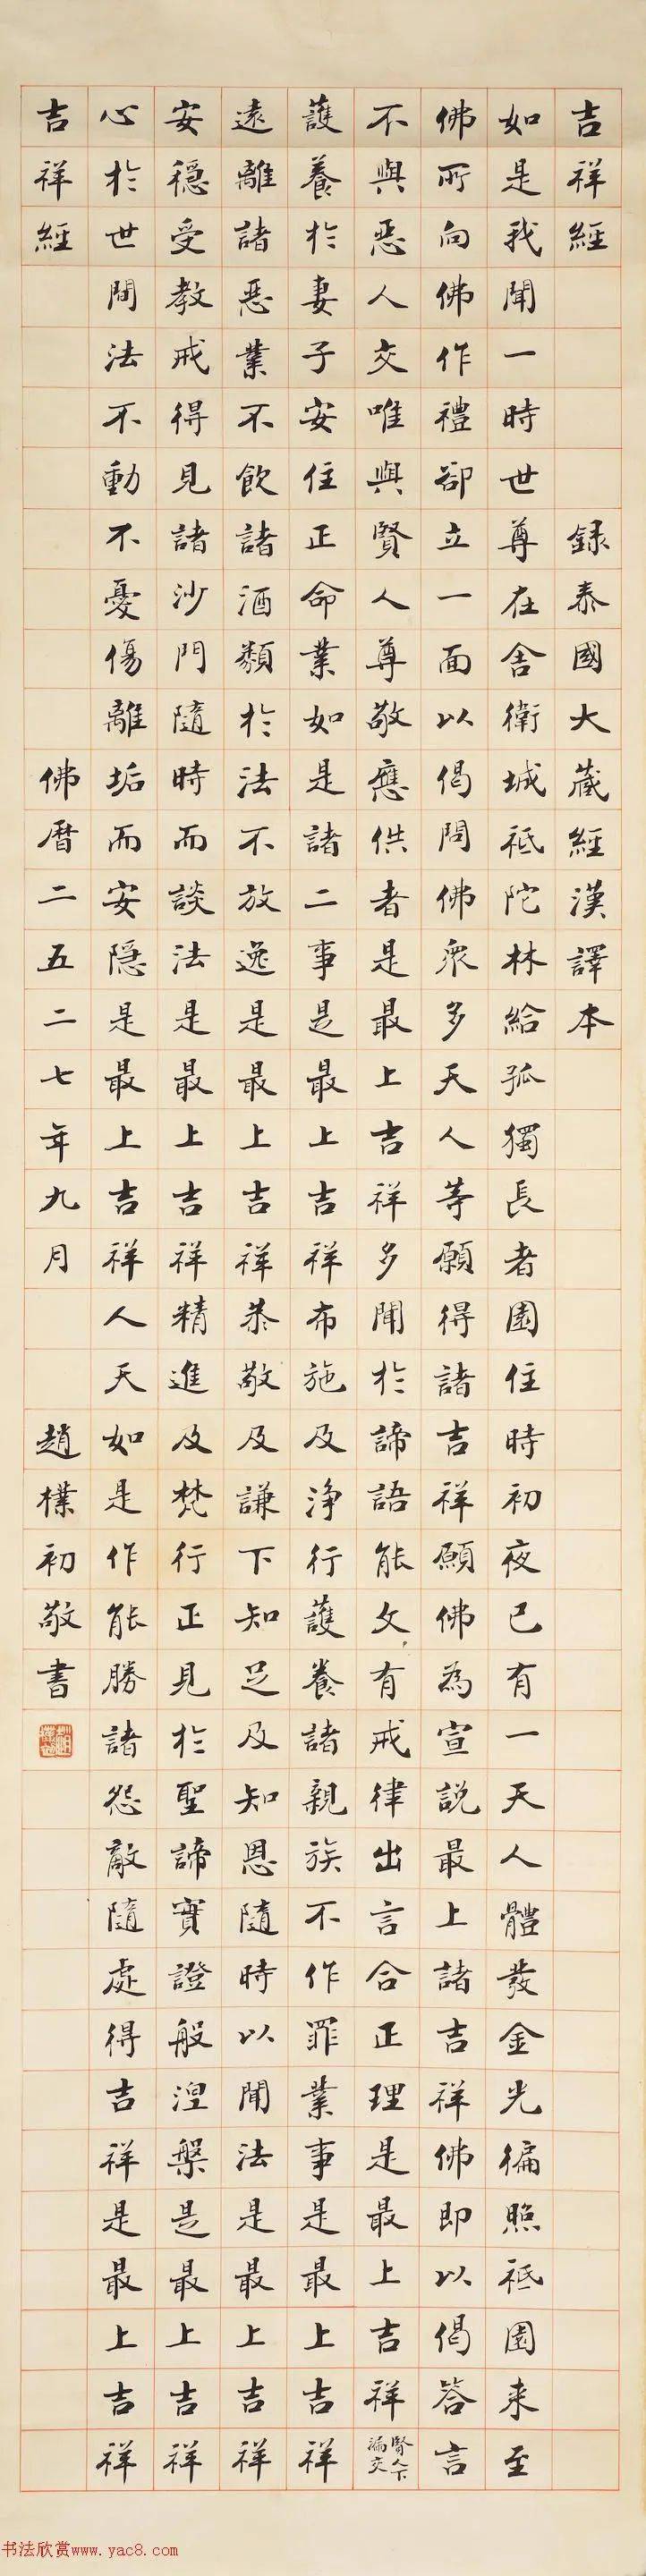 吉祥經 錄泰國大藏經漢譯本
如是我聞一時世尊在舍衛城祇陀林給孤獨長者園住時初夜已有一天人體發金光徧照祇園来至
佛所向佛作禮卻立一面以偈問佛眾多天人等願得諸吉祥願佛為宣說最上諸吉祥佛即以偈答言
不與惡人交唯與賢人尊敬應供者是最上吉祥多聞於諦語能文有戒律出言合正理是最上吉祥 賢人下漏交
護養於妻子安住正命業如是諸二事是最上吉祥布施及淨行護養諸親族不作罪業事是最上吉祥
遠離諸惡業不飲諸酒類於法不放逸是最上吉祥恭敬及謙下知足及知恩隨時以聞法是最上吉祥
安穩受教戒得見諸沙門隨時而談法是最上吉祥精進及梵行正見於聖諦實證般涅槃是最上吉祥
心於世間法不動不憂傷離垢而安隱是最上吉祥人天如是作能勝諸怨敵隨處得吉祥是最上吉祥
吉祥經 佛曆二五二七年九月 趙樸初敬書
书法欣赏www.yac8.com